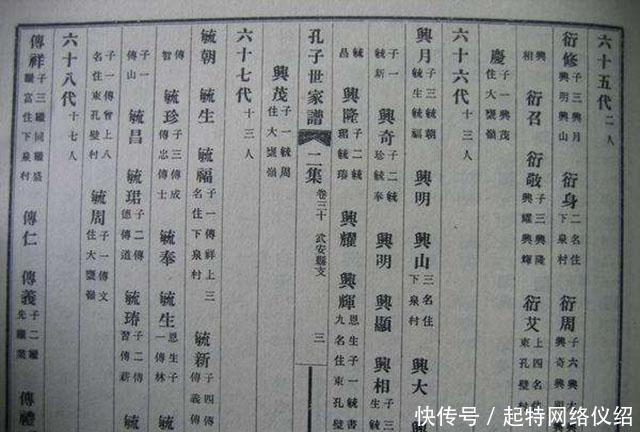 六十五代 二人
衍修 子三興月 興明興山 衍身 二名住 下泉村 衍周 子六興大 興奇興明
興相 衍召 衍敬 子三興隆 興耀興輝 衍艾 上四名住 東孔壁村
慶 子一興茂 住大甕嶺
六十六代 十三人
興月 子三毓朝 毓生毓福 興明 興山 三名住 下泉村 興大
子一 毓新 興奇 子二毓 珍毓奉 興明 興顯 興相 毓生
毓昌 興隆 子二毓 興耀 興輝 恩生子一毓書 九名住東孔
興茂 子一毓周 住大甕嶺
孔子世家譜 二集 卷三十 武安縣支 三
六十七代 十三人
毓朝 毓生 毓福 子一傳祥上三 名住下泉村 毓新 子四傳 傳義傳
傳智 毓珍 子三傳成 傳忠傳士 毓奉 毓生 恩生子 一傳林
子一 傳山 毓昌 毓珺 子二傳 德傳道 子二傳 習傳薪
子一傳曾上八 名住東孔壁村 毓周 子一傳文 住大甕嶺
六十八代 十七人
傳祥 子三繼同繼盛 繼富住下泉村 傳仁 傳義 子二繼 先繼業 傳禮
快传号 / 起特网络仪绍